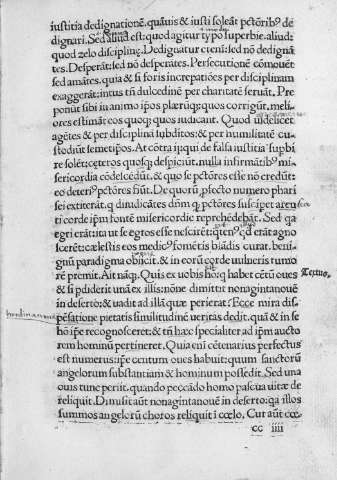 iustitia dedignationē. quāuis & iusti soleāt pctōribꝰ de
dignari. Sed aliud est: quod agitur typo superbie. aliud:
quod zelo disciplinę. Dedignatur etenī: sed nō dedignā
tes. Desperāt: sed nō desperātes. Persecutionē cōmouēt
sed amātes. quia & si foris increpatiōes per disciplinam
exaggerāt: intus tn̄ dulcedinē per charitatē seruāt. Pre
ponūt sibi iu animo ip̄os plærūqꝫ: quos corrigūt. meli/
ores estimāt eos quoqꝫ: quos iudicant. Quod uidelicet
agētes & per disciplina subditos: & per humilitatē cu/
stodiūt semetip̄os. At cōtra ii: qui de falsa iustitia supbi
re solēt: cęteros quosqꝫ despiciūt. nulla infirmātibꝰ mi/
sericordia cōdelcēdūt. & quo se pctōres esse nō credūt:
eo deteriꝰ pctōres fiūt. De quorū ꝓfecto numero phari
sei extiterāt. q diiudicātes dn̄m ꝙ pctōres susciperet aren
ti corde ip̄m fontē misericordie reprehēdebāt. Sed qa
egri erāt: ita ut se egros esse nescirēt: qtenꝰ qd̄ erāt agno
scerēt: cælestis eos medicꝰ fomētis blādis curat. beni/
gnū paradigma obiicit. & in eorū corde uulneris tumo
rē premit. Ait nāqꝫ. Quis ex uobis hō: q habet cētū oues Textus
& si pdiderit unā ex illis: nōne dimittit nonagintanouē
in deserto: & uadit ad illā quæ perierat? Ecce mira dis/
pēsatione pietatis similitudinē ueritas dedit. quā & in se
hō ip̄e recognosceret: & tn̄ hæc specialiter ad ip̄m aucto
rem hominū pertineret. Quia em̄ cētenarius perfectus
est numerus: ip̄e centum oues habuit: quum sanctorū
angelorum substantiam & hominum possedit. Sed una
ouis tunc periit. quando peccādo homo pascua uitæ de
reliquit. Dimisit aūt nonagintanouē in deserto: qa illos
summos angelorū choros reliquit i cœlo. Cur aūt cœ
cc iiii